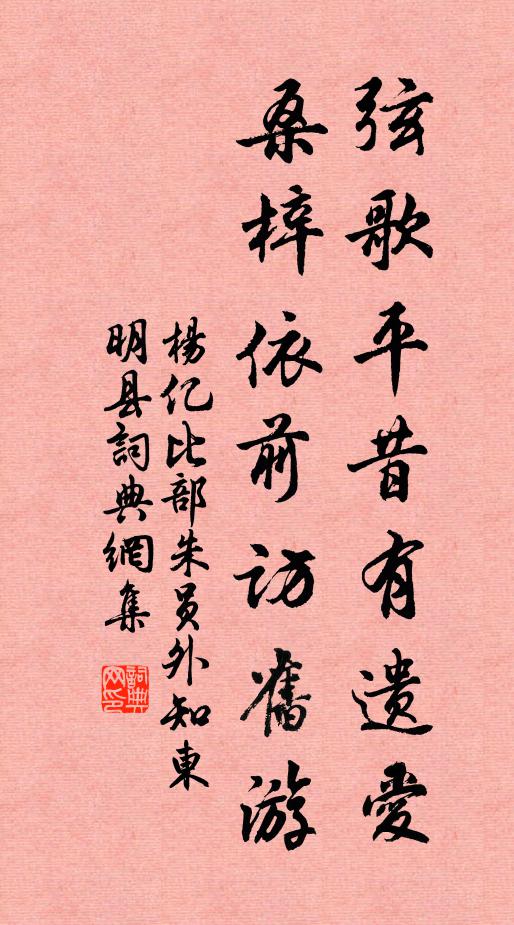 弦歌平昔有遗愛
桑梓依前访舊游
楊亿比部朱员外知東
明县詞典網集
詞典网印